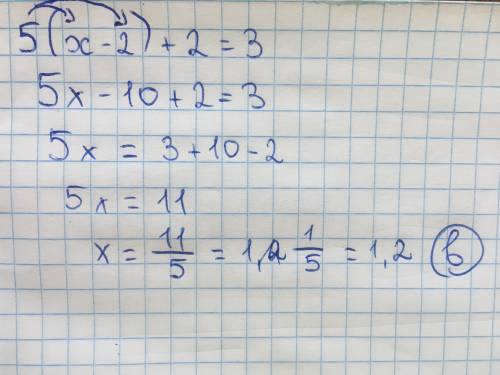 5(x-2)+2=3
5x-10+2=3
5x = 3+10-2
5x = 11
x = 11/5 = 1 1/5 = 1,2 в